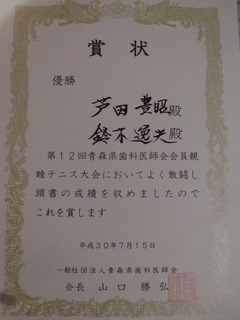 賞状
優勝
芦田 豊昭殿
鈴木 逸夫殿
第12回青森県歯科医師会会員親
睦テニス大会においてよく敢闘し
頭書の成績を収めましたので
これを賞します
平成30年7月15日
一般社団法人青森県歯科医師会
会長 山口勝弘